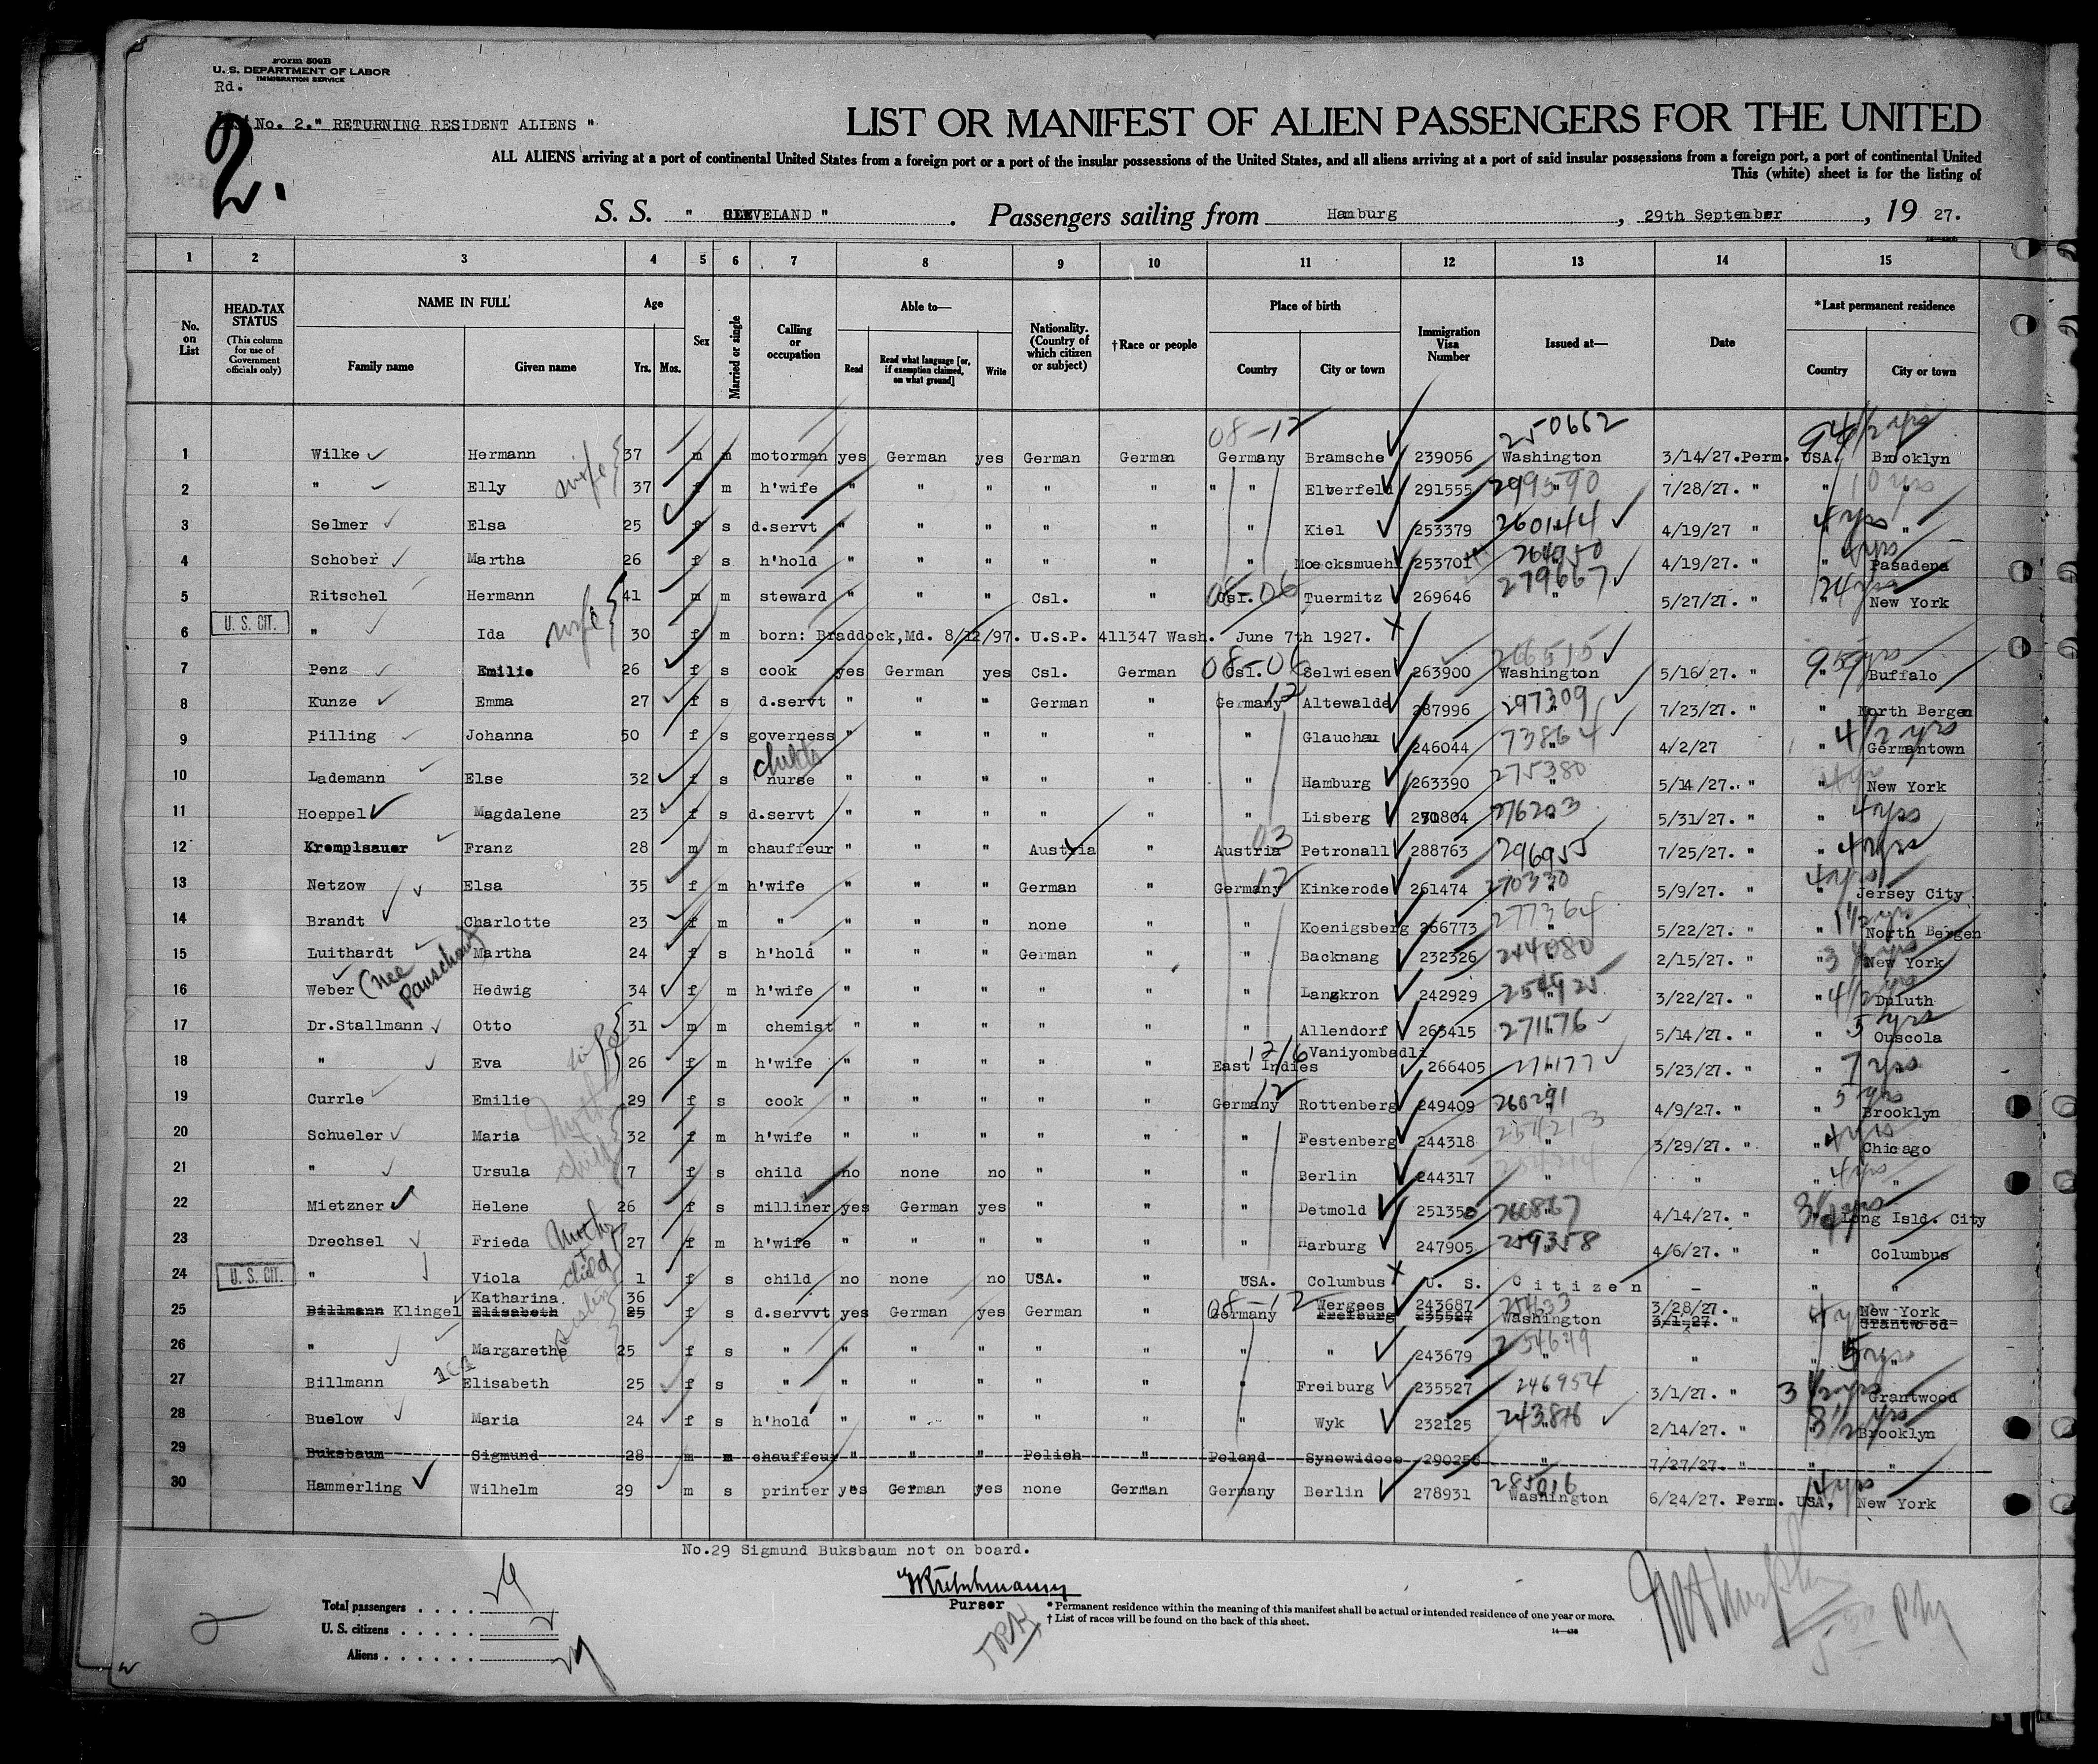 Form 500B
U. S. DEPARTMENT OF LABOR
IMMIGRATION SERVICE
Rd.
No. 2." RETURNING RESIDENT ALIENS "
2.
LIST OR MANIFEST OF ALIEN PASSENGERS FOR THE UNITED
ALL ALIENS arriving at a port of continental United States from a foreign port or a port of the insular possessions of the United States, and all aliens arriving at a port of said insular possessions from a foreign port, a port of continental United
This (white) sheet is for the listing of
S. S. " CLEVELAND " . Passengers sailing from Hamburg , 29th September , 19 27.
1 2 3 4 5 6 7 8 9 10 11 12 13 14 15
No. on List
HEAD-TAX STATUS (This column for use of Government officials only)
NAME IN FULL Family name Given name
Age Yrs. Mos.
Sex
Married or single
Calling or occupation
Able to— Read Read what language [or, if exemption claimed, on what ground] Write
Nationality. (Country of which citizen or subject)
†Race or people
Place of birth Country City or town
Immigration Visa Number
Issued at—
Date
*Last permanent residence Country City or town
08-12 250662
1 Wilke Hermann wife 37 m m motorman yes German yes German German Germany Bramsche 239056 Washington 3/14/27.Perm. USA. Brooklyn
2 " Elly 37 f m h'wife " " " " " " " Elberfeld 291555 299590 " 7/28/27. " " 10 yrs "
3 Selmer Elsa 25 f s d.servt " " " " " " Kiel 253379 260144 " 4/19/27 " " 4 yrs "
4 Schober Martha 26 f s h'hold " " " " " " Moecksmuehl 253701 264950 " 4/19/27. " " 4 yrs Pasadena
5 Ritschel Hermann 41 m m steward " " " Csl. " Csl. 08-06 Tuermitz 269646 279667 " 5/27/27. " " New York
6 U. S. CIT. " Ida wife 30 f m born: Braddock,Md. 8/12/97. U.S.P. 411347 Wash. June 7th 1927.
7 Penz Emilie 26 f s cook yes German yes Csl. German Csl. 08-06 Selwiesen 263900 266515 Washington 5/16/27. " " Buffalo
8 Kunze Emma 27 f s d.servt " " " German " Germany 12 Altewalde 287996 297309 " 7/23/27. " " North Bergen
9 Pilling Johanna 50 f s governess " " " " " " Glauchau 246044 73864 " 4/2/27 " 4 1/2 yrs Germantown
10 Lademann Else 32 f s nurse " " " " " " Hamburg 263390 275380 " 5/14/27. " " New York
11 Hoeppel Magdalene 23 f s d.servt " " " " " " Lisberg 270804 276203 " 5/31/27. " " 4 yrs
12 Kremplsauer Franz 28 m m chauffeur " " " Austria " Austria 03 Petronall 288763 296955 7/25/27. " " 4 yrs
13 Netzow Elsa 35 f m h'wife " " " German " Germany 12 Kinkerode 261474 270330 " 5/9/27. " " Jersey City
14 Brandt Charlotte 23 f m " " " " none " " Koenigsberg 266773 277364 " 5/22/27. " " 1 1/2 yrs North Bergen
15 Luithardt Martha 24 f s h'hold " " " German " " Backnang 232326 244080 " 2/15/27. " " New York
16 Weber (nee Hedwig 34 f m h'wife " " " " " " Langkron 242929 254425 " 3/22/27. " " 4 1/2 yrs Duluth
17 Dr.Stallmann Otto 31 m m chemist " " " " " " Allendorf 263415 271176 " 5/14/27. " " 5 yrs Ouscola
18 " Eva wife 26 f m h'wife " " " " " East Indies 12/6 Vaniyombadli 266405 271177 " 5/23/27. " " 7 yrs
19 Currle Emilie 29 f s cook " " " " " Germany 12 Rottenberg 249409 260291 " 4/9/27. " " 5 yrs Brooklyn
20 Schueler Maria 32 f m h'wife " " " " " " Festenberg 244318 254213 " 3/29/27. " " 4 yrs Chicago
21 " Ursula child 7 f s child no none no " " " Berlin 244317 254214 " " " 4 yrs "
22 Mietzner Helene 26 f s milliner yes German yes " " " Detmold 251350 260867 " 4/14/27. " " Long Isld. City
23 Drechsel Frieda 27 f m h'wife " " " " " " Harburg 247905 259358 " 4/6/27. " " Columbus
24 U. S. CIT. " Viola child 1 f s child no none no USA. " USA. Columbus U. S. Citizen - " "
Katharina 36 Wergees 243687 3/28/27. New York
25 Billmann Klingel Elisabeth 25 f s d.servvt yes German yes German " Germany 08-12 Freiburg 235527 Washington 3/1/27. " Grantwood
26 " Margarethe 25 f s " " " " " " " " 243679 254649 " " " 5 yrs "
27 Billmann Elisabeth 25 f s " " " " " " " Freiburg 235527 246954 3/1/27. " 3 1/2 yrs Grantwood
28 Buelow Maria 24 f s h'hold " " " " " " Wyk 232125 243876 " 2/14/27. " " 3 1/2 yrs Brooklyn
29 Buksbaum Sigmund 28 m m chauffeur " " " Polish " Poland Synowidoce 290256 " 7/27/27. " " "
30 Hammerling Wilhelm 29 m s printer yes German yes none German Germany Berlin 278931 285016 Washington 6/24/27. Perm. USA, 4 yrs New York
No.29 Sigmund Buksbaum not on board.
Purser
Total passengers . . . .
U. S. citizens . . . . .
Aliens . . . . . .
* Permanent residence within the meaning of this manifest shall be actual or intended residence of one year or more.
† List of races will be found on the back of this sheet.